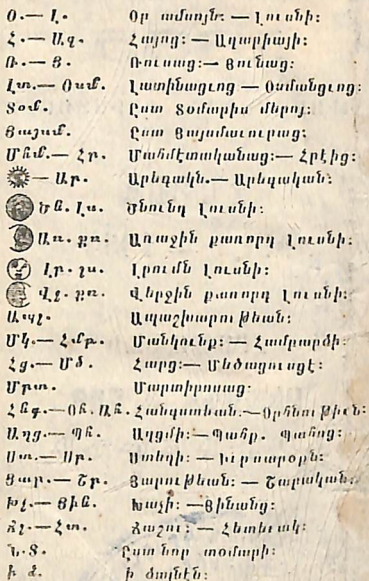 Օ.— Լ. Օր ամսոյն. — Լուսնի:
Հ.— Ազ. Հայոց: — Ազարիայի:
Ռ.— Յ. Ռուսաց:— Յունաց:
Լտ.— Օսմ. Լատինացւոց — Օսմանցւոց:
Տօմ. Ըստ Տօմարիս մերոյ:
Յայսմ. Ըստ Յայսմաւուրաց:
Մհմ.— Հր. Մահմէտականաց:— Հրէից:
Ար. Արեգակն.— Արեգական:
Ծն. Լս. Ծնունդ Լուսնի:
Առ. քռ. Առաջին քառորդ Լուսնի:
Լր. լս. Լրումն Լուսնի:
Վջ. քռ. Վերջին քառորդ Լուսնի:
Ապշ. Ապաշխարութեան:
Մկ.— Համբ. Մանկունք: — Համբարձի:
Հց.— Մծ. Հարց:— Մեծացուսցէ:
Մրտ. Մարտիրոսաց.
Հնգ.—Օհ. Ան. Հանգստեան:—Օրհնութիւն:
Աղց.— Պհ. Աղցմի:—Պահք. պահոց:
Ստ.— Սր. Ստեղի: — Իւրսարօրն:
Յար.— Շր. Յարութեան: — Շարական:
Խչ.— Յին. Խաչի: —Յինանց:
Ճշ.— Հտ. Ճաշու: — Հետեւակ:
Ն. Տ. Ըստ նոր տօմարի:
ի ձ. ի ձայնէն: